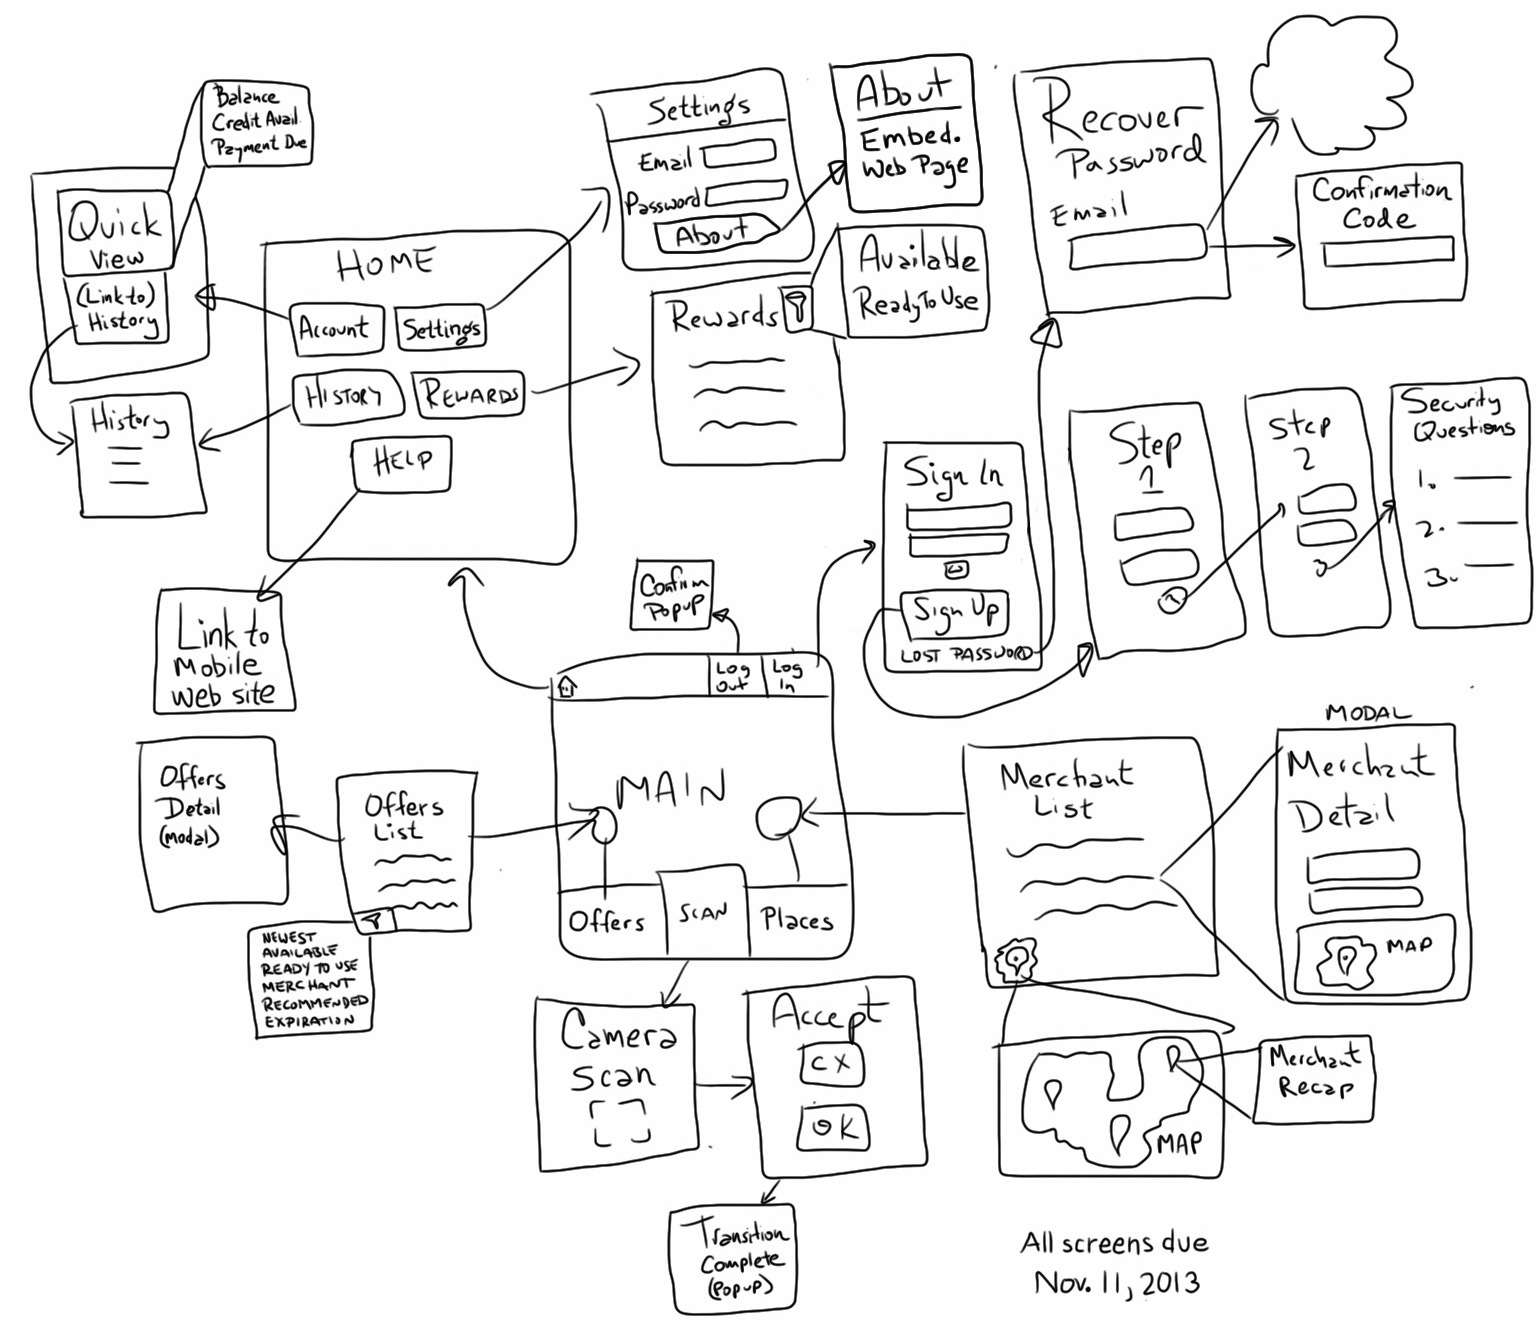 Balance
Credit Avail.
Payment Due
Quick
View
(Link to)
History
History
HOME
Account
Settings
HISTORY
REWARDS
HELP
Link to
Mobile
Web site
Settings
Email
Password
About
About
Embed.
Web Page
Rewards
Available
Ready To Use
Recover
Password
Email
Confirmation
Code
Sign In
Sign Up
LOST PASSWORD
Step
1
Step
2
Security
Questions
1.
2.
3.
Confirm
Popup
Log
Out
Log
In
MAIN
Offers
SCAN
Places
Offers
Detail
(Modal)
Offers
List
NEWEST
AVAILABLE
READY TO USE
MERCHANT
RECOMMENDED
EXPIRATION
Merchant
List
MODAL
Merchant
Detail
MAP
Camera
Scan
Accept
CX
OK
Transition
Complete
(Popup)
MAP
Merchant
Recap
All screens due
Nov. 11, 2013